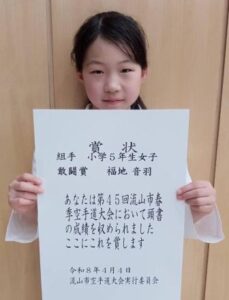 賞状
組手　小学５年生女子
敢闘賞　福地　音羽
あなたは第４５回流山市春
季空手道大会において頭書
の成績を収められました
ここにこれを賞します
令和８年４月４日
流山市空手道大会実行委員会